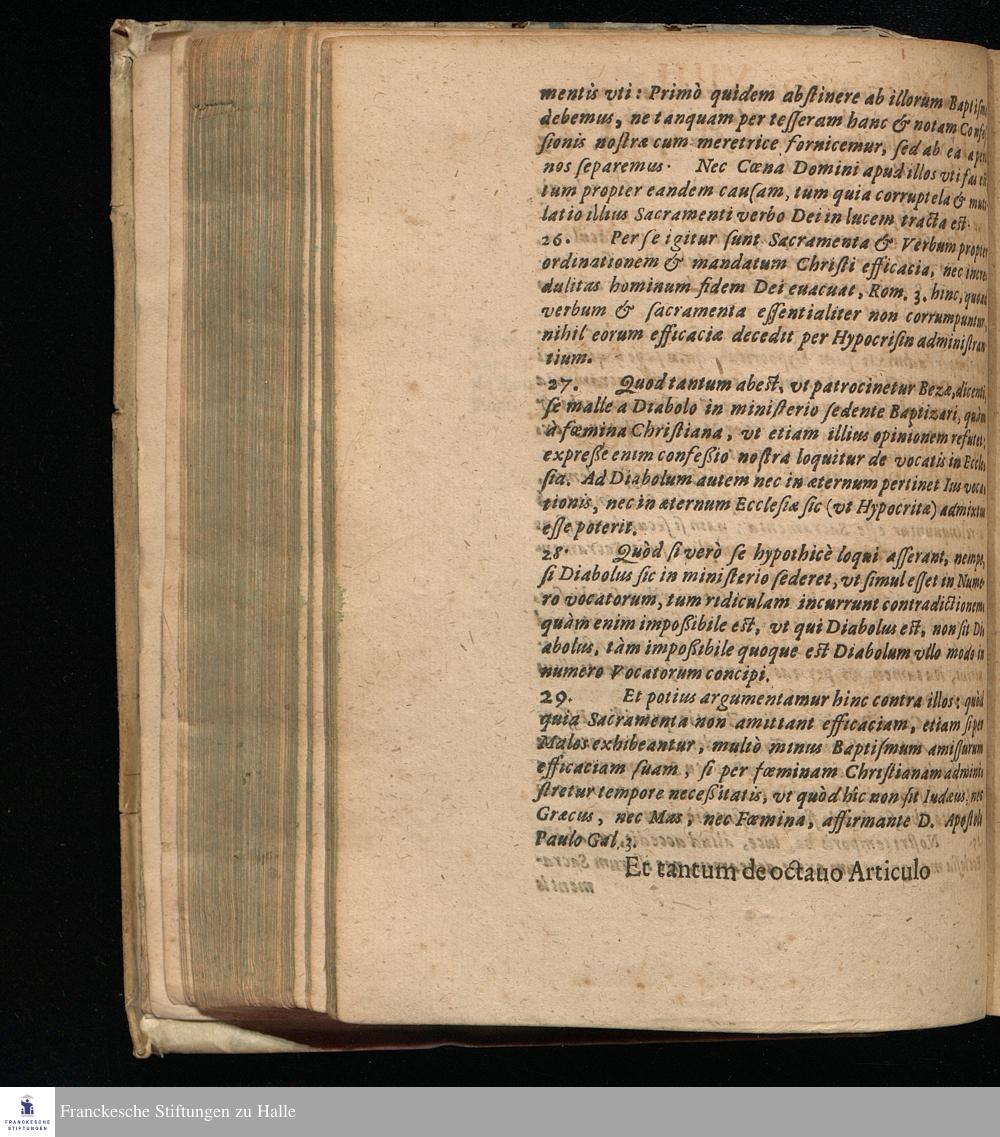 mentis vti: Primò quidem abstinere ab illorum Baptism
debemus, ne tanquam per tesseram hanc & notam Confes
sionis nostræ cum meretrice fornicemur, sed ab ea aper
nos separemus. Nec Cœna Domini apud illos vti fas est
tum propter eandem causam, tum quia corruptela & muti
latio illius Sacramenti verbo Dei in lucem tracta est.
26. Per se igitur sunt Sacramenta & Verbum propter
ordinationem & mandatum Christi efficacia, nec incre
dulitas hominum fidem Dei euacuat, Rom. 3. hinc, quoad
verbum & sacramenta essentialiter non corrumpuntur,
nihil eorum efficaciæ decedit per Hypocrisin administran
tium.
27. Quod tantum abest, vt patrocinetur Bezæ, dicenti,
se malle a Diabolo in ministerio sedente Baptizari, quàm
à fœmina Christiana, vt etiam illius opinionem refutet;
expreße enim confeßio nostra loquitur de vocatis in Eccle
sia. Ad Diabolum autem nec in æternum pertinet Ius voca
tionis, nec in æternum Ecclesiæ sic (vt Hypocritæ) admixtu
esse poterit.
28. Quòd si verò se hypothicè loqui asserant, nempe,
si Diabolus sic in ministerio sederet, vt simul esset in Nume
ro vocatorum, tum ridiculam incurrunt contradictionem
quàm enim impoßibile est, vt qui Diabolus est, non sit Di
abolus, tàm impoßibile quoque est Diabolum vllo modo in
numero Vocatorum concipi.
29. Et potius argumentamur hinc contra illos; quòd
quia Sacramenta non amittant efficaciam, etiam si per
Malos exhibeantur, multò minus Baptismum amissurum
efficaciam suam, si per fœminam Christianam admini
stretur tempore neceßitatis, vt quòd hîc non sit Iudæus, nec
Græcus, nec Mas, nec Fœmina, affirmante D. Apostolo
Paulo Gal. 3.
Et tantum de octauo Articulo
Franckesche Stiftungen zu Halle
FRANCKESCHE
STIFTUNGEN